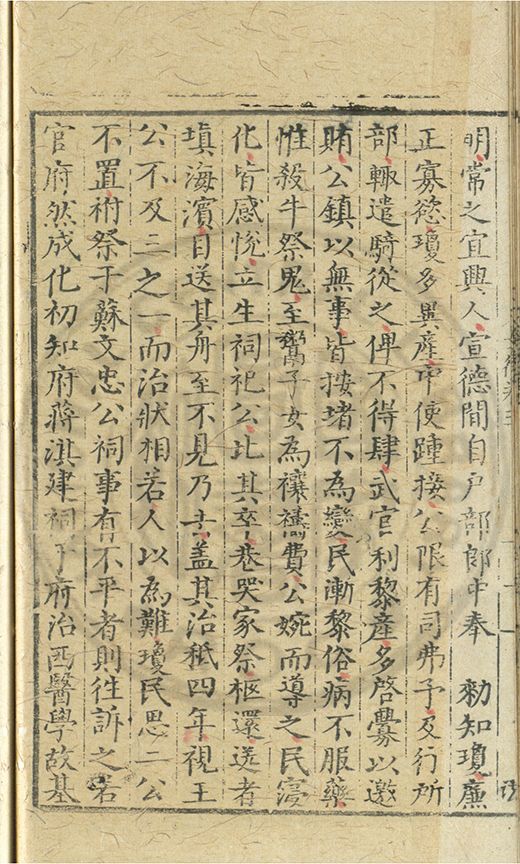 明常之宜興人宣德間自戶部郎中奉　勑知瓊廉
正寡慾瓊多異產中使踵接公限有司弗予及行所
部輙遣騎從之俾不得肆武官利黎產多啓釁以邀
賄公鎮以無事皆按堵不為變民漸黎俗病不服藥
惟殺牛祭鬼至鬻子女為禳禱費公婉而導之民寖
化皆感悅立生祠祀公比其卒巷哭家祭柩還送者
填海濱目送其舟至不見乃去盖其治秪四年視王
公不及三之一而治狀相若人以為難瓊民思二公
不置祔祭于蘇文忠公祠事有不平者則往訴之若
官府然成化初知府蔣淇建祠于府治西醫學故基